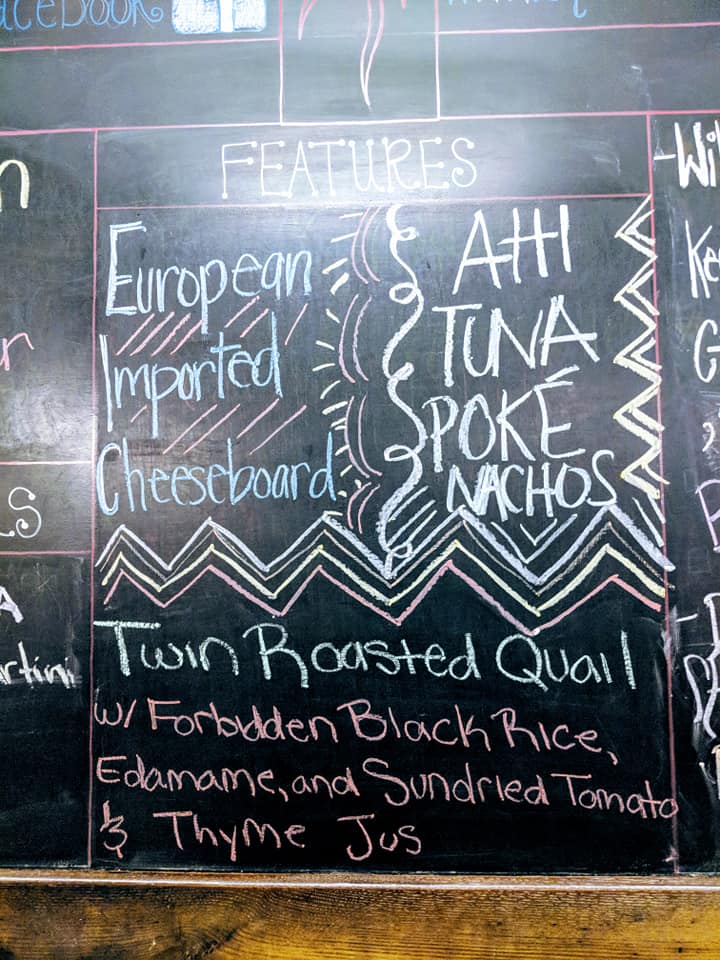 FEATURES
European
Imported
Cheeseboard
AHI
TUNA
POKÉ
NACHOS
Twin Roasted Quail
w/ Forbidden Black Rice,
Edamame, and Sundried Tomato
& Thyme Jus